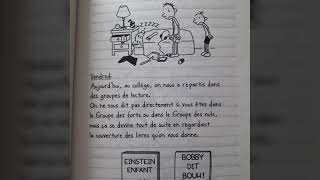 Vendredi
Aujourd'hui, au collège, on nous a répartis dans
des groupes de lecture.
On ne vous dit pas directement si vous êtes dans
le Groupe des forts ou dans le Groupe des nuls,
mais ça se devine tout de suite en regardant
la couverture des livres qu'on vous donne.
EINSTEIN
ENFANT
BOBBY
DIT
BOUH!